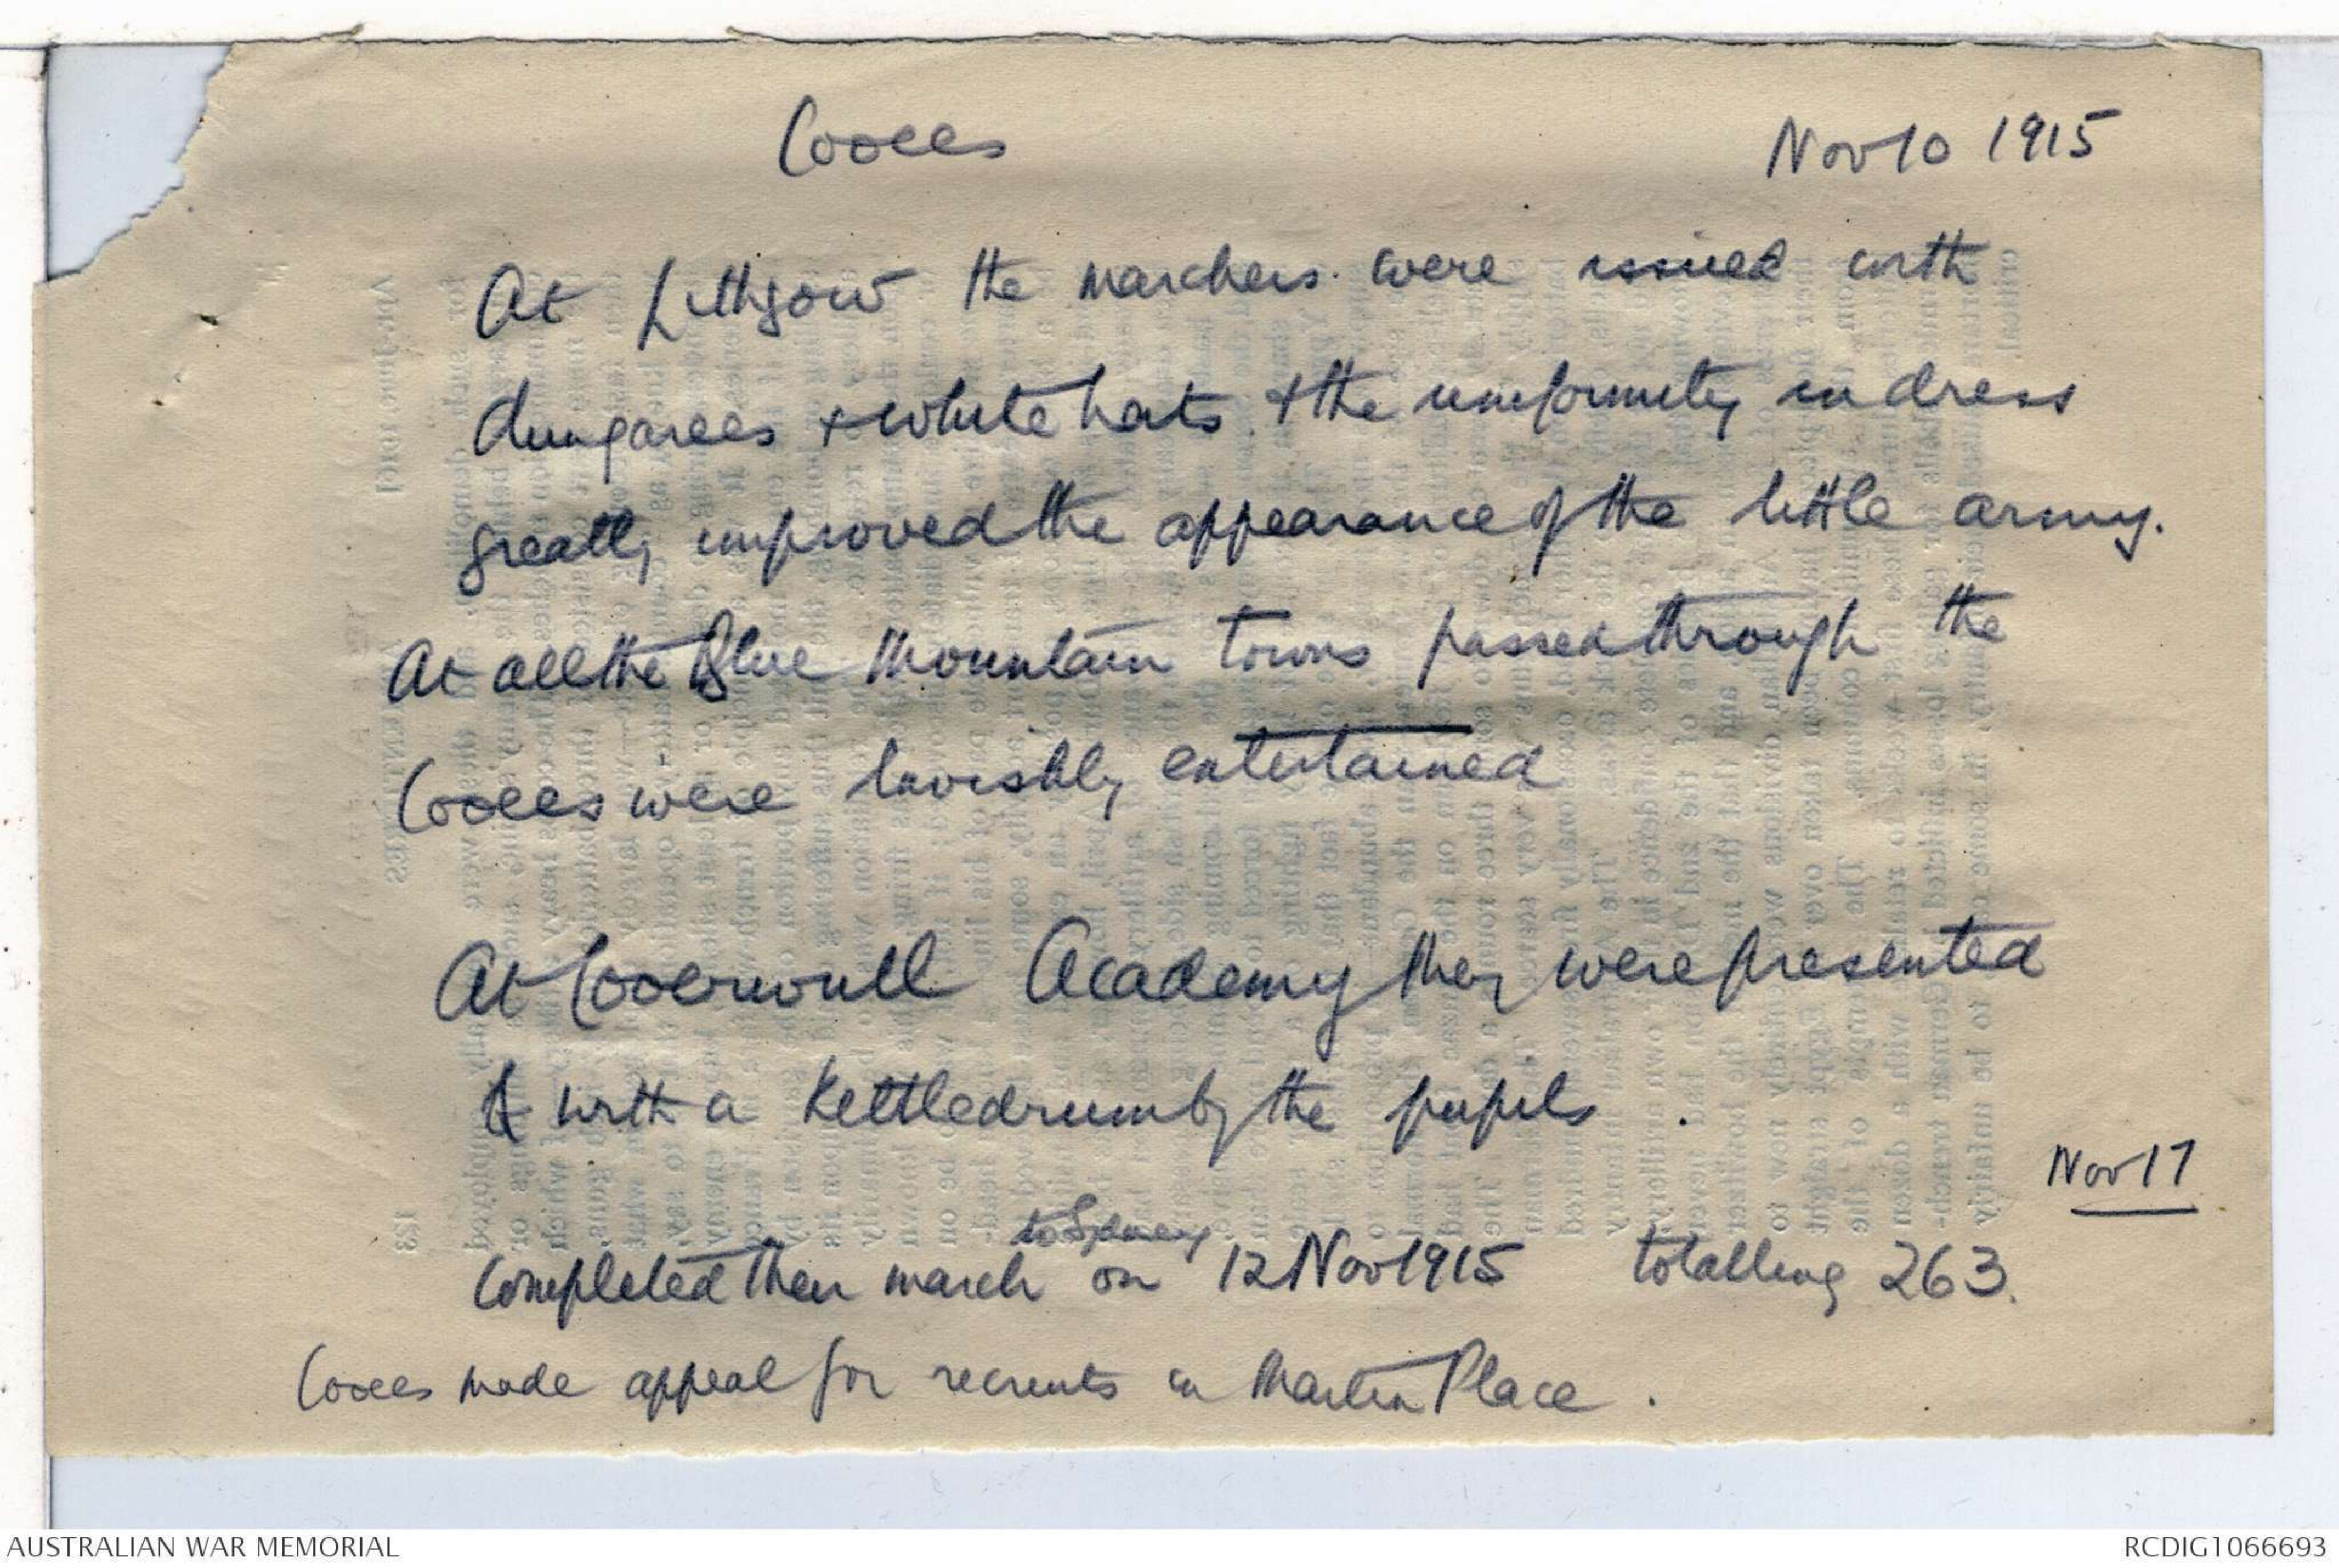 Cooees
Nov 10 1915
At Lithgow the marchers were issued with
dungarees + white hats + the uniformity in dress
greatly improved the appearance of the little army.
At all the Blue Mountain towns passed through the
Cooees were lavishly entertained
At Cooerwull Academy they were presented
with a Kettledrum by the pupils.
Nov 17
to Sydney
Completed their march on 12 Nov 1915 totalling 263.
Cooees made appeal for recruits in Martin Place.
AUSTRALIAN WAR MEMORIAL
RCDIG1066693